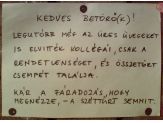 KEDVES BETÖRŐ(K)!
LEGUTÓBB MÉG AZ ÜRES ÜVEGEKET
IS ELVITTÉK KOLLÉGÁI, CSAK A
RENDETLENSÉGET, ÉS ÖSSZETÖRT
CSEMPÉT TALÁLJA.
KÁR A FÁRADOZÁS, HOGY
MEGNÉZZE, - A SZÉTTÚRT SEMMIT.